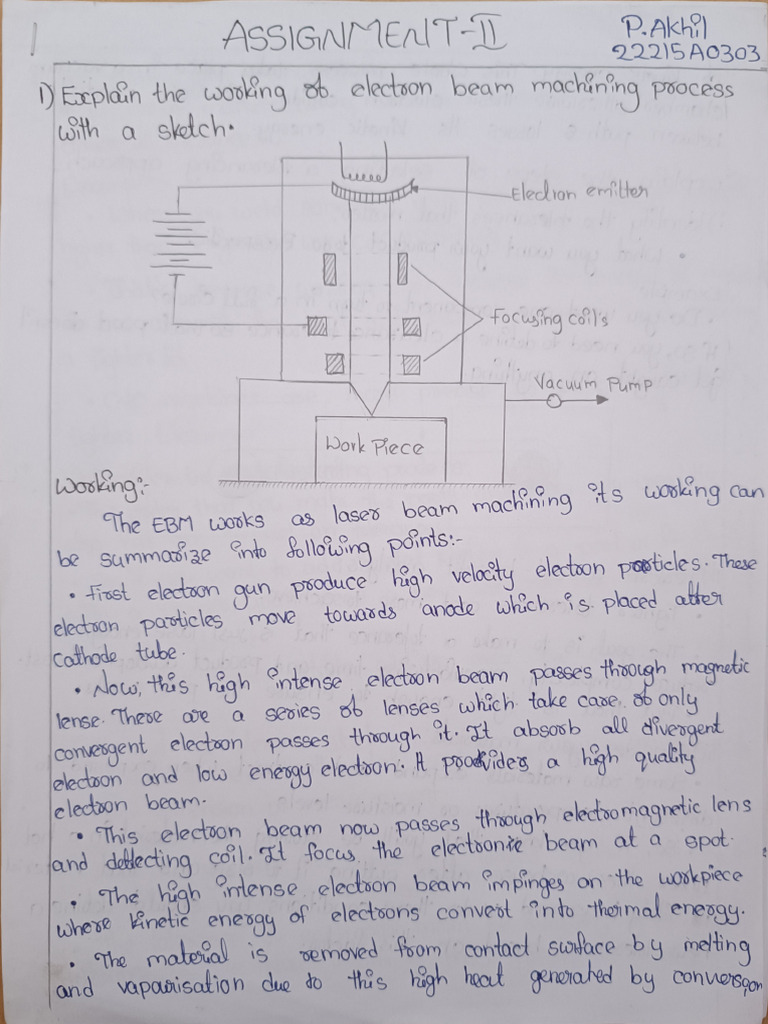 ASSIGNMENT-II
P.Akhil
22215A0303
1) Explain the working of electron beam machining process
with a sketch.
Election emitter
Focusing coil's
Vacuum Pump
Work Piece
Working:-
The EBM works as laser beam machining its working can
be summarize into following points:-
• First electron gun produce high velocity electron particles. These
electron particles move towards anode which is placed after
cathode tube.
• Now, this high intense electron beam passes through magnetic
lense. There are a series of lenses which take care of only
convergent electron passes through it. It absorb all divergent
electron and low energy electron. It provides a high quality
electron beam.
• This electron beam now passes through electromagnetic lens
and deflecting coil. It focus the electronic beam at a spot.
• The high intense electron beam impinges on the workpiece
where kinetic energy of electrons convert into thermal energy.
• The material is removed from contact surface by melting
and vapourisation due to this high heat generated by conversion